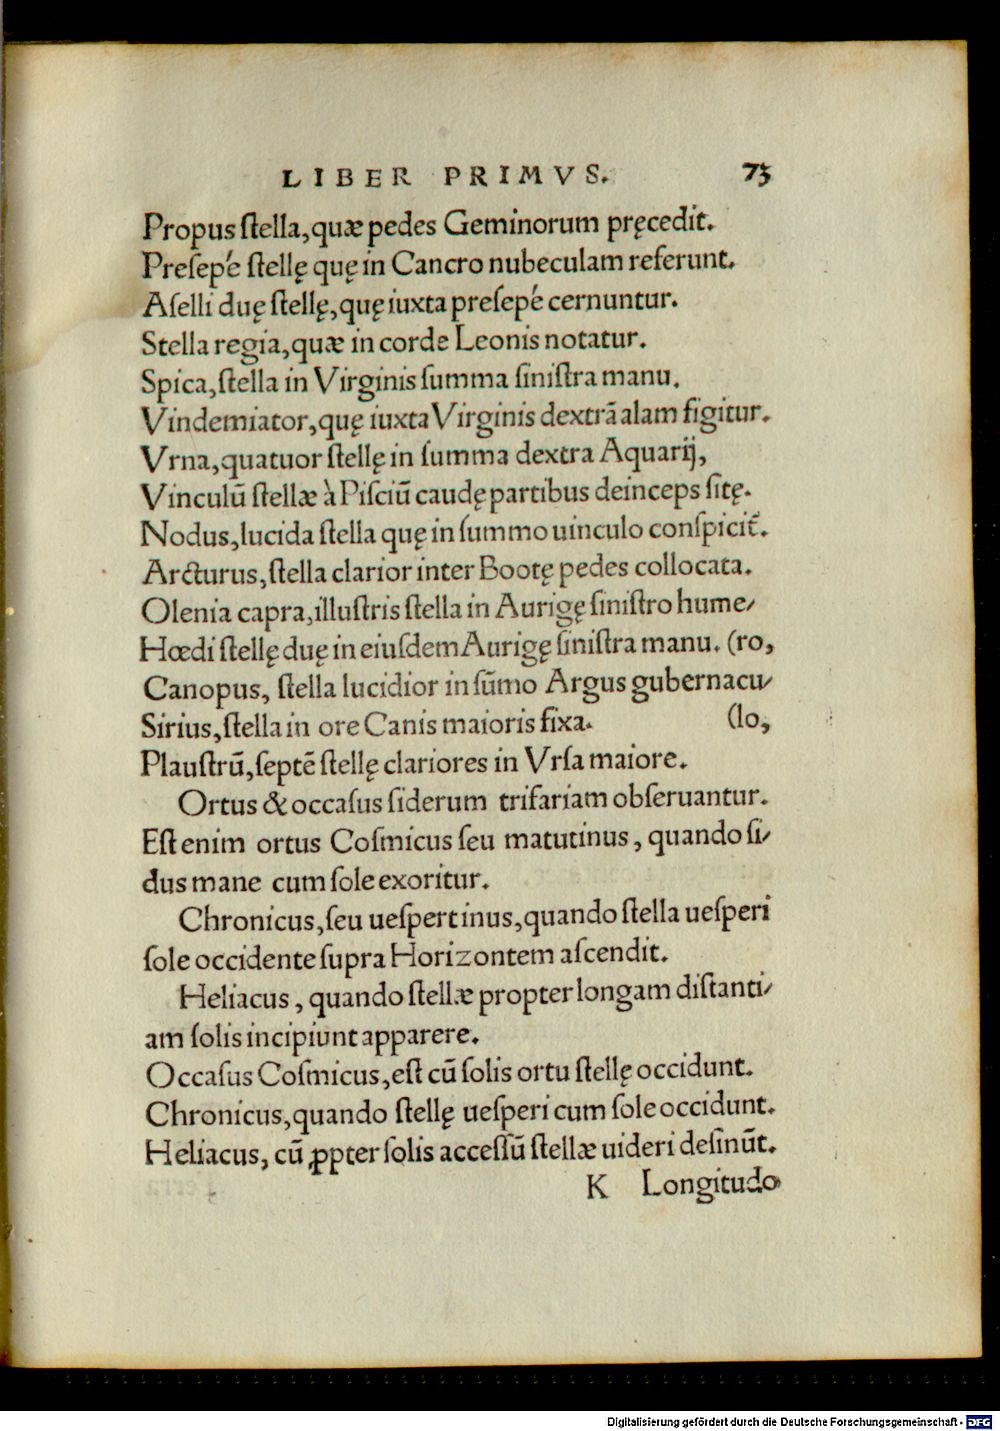 LIBER PRIMVS. 73
Propus ſtella,quæ pedes Geminorum pręcedit.
Preſepé ſtellę quę in Cancro nubeculam referunt.
Aſelli duę ſtellę,quę iuxta preſepé cernuntur.
Stella regia,quæ in corde Leonis notatur.
Spica,ſtella in Virginis ſumma ſiniſtra manu.
Vindemiator,quę iuxta Virginis dextrã alam figitur.
Vrna,quatuor ſtellę in ſumma dextra Aquarij,
Vinculũ ſtellæ à Piſciũ caudę partibus deinceps ſitę.
Nodus,lucida ſtella quę in ſummo uinculo conſpicit̃.
Arcturus,ſtella clarior inter Bootę pedes collocata.
Olenia capra,illuſtris ſtella in Aurigę ſiniſtro hume/
Hœdi ſtellę duę in eiuſdem Aurigę ſiniſtra manu. (ro,
Canopus, ſtella lucidior in ſũmo Argus gubernacu/
Sirius,ſtella in ore Canis maioris fixa. (lo,
Plauſtrũ,ſeptẽ ſtellę clariores in Vrſa maiore.
Ortus & occaſus ſiderum trifariam obſeruantur.
Eſt enim ortus Coſmicus ſeu matutinus, quando ſi/
dus mane cum ſole exoritur.
Chronicus,ſeu ueſpertinus,quando ſtella ueſperi
ſole occidente ſupra Horizontem aſcendit.
Heliacus, quando ſtellæ propter longam diſtanti/
am ſolis incipiunt apparere.
Occaſus Coſmicus,eſt cũ ſolis ortu ſtellę occidunt.
Chronicus,quando ſtellę ueſperi cum ſole occidunt.
Heliacus, cũ ꝓpter ſolis acceſſũ ſtellæ uideri deſinũt.
K Longitudo
Digitalisierung gefördert durch die Deutsche Forschungsgemeinschaft - DFG